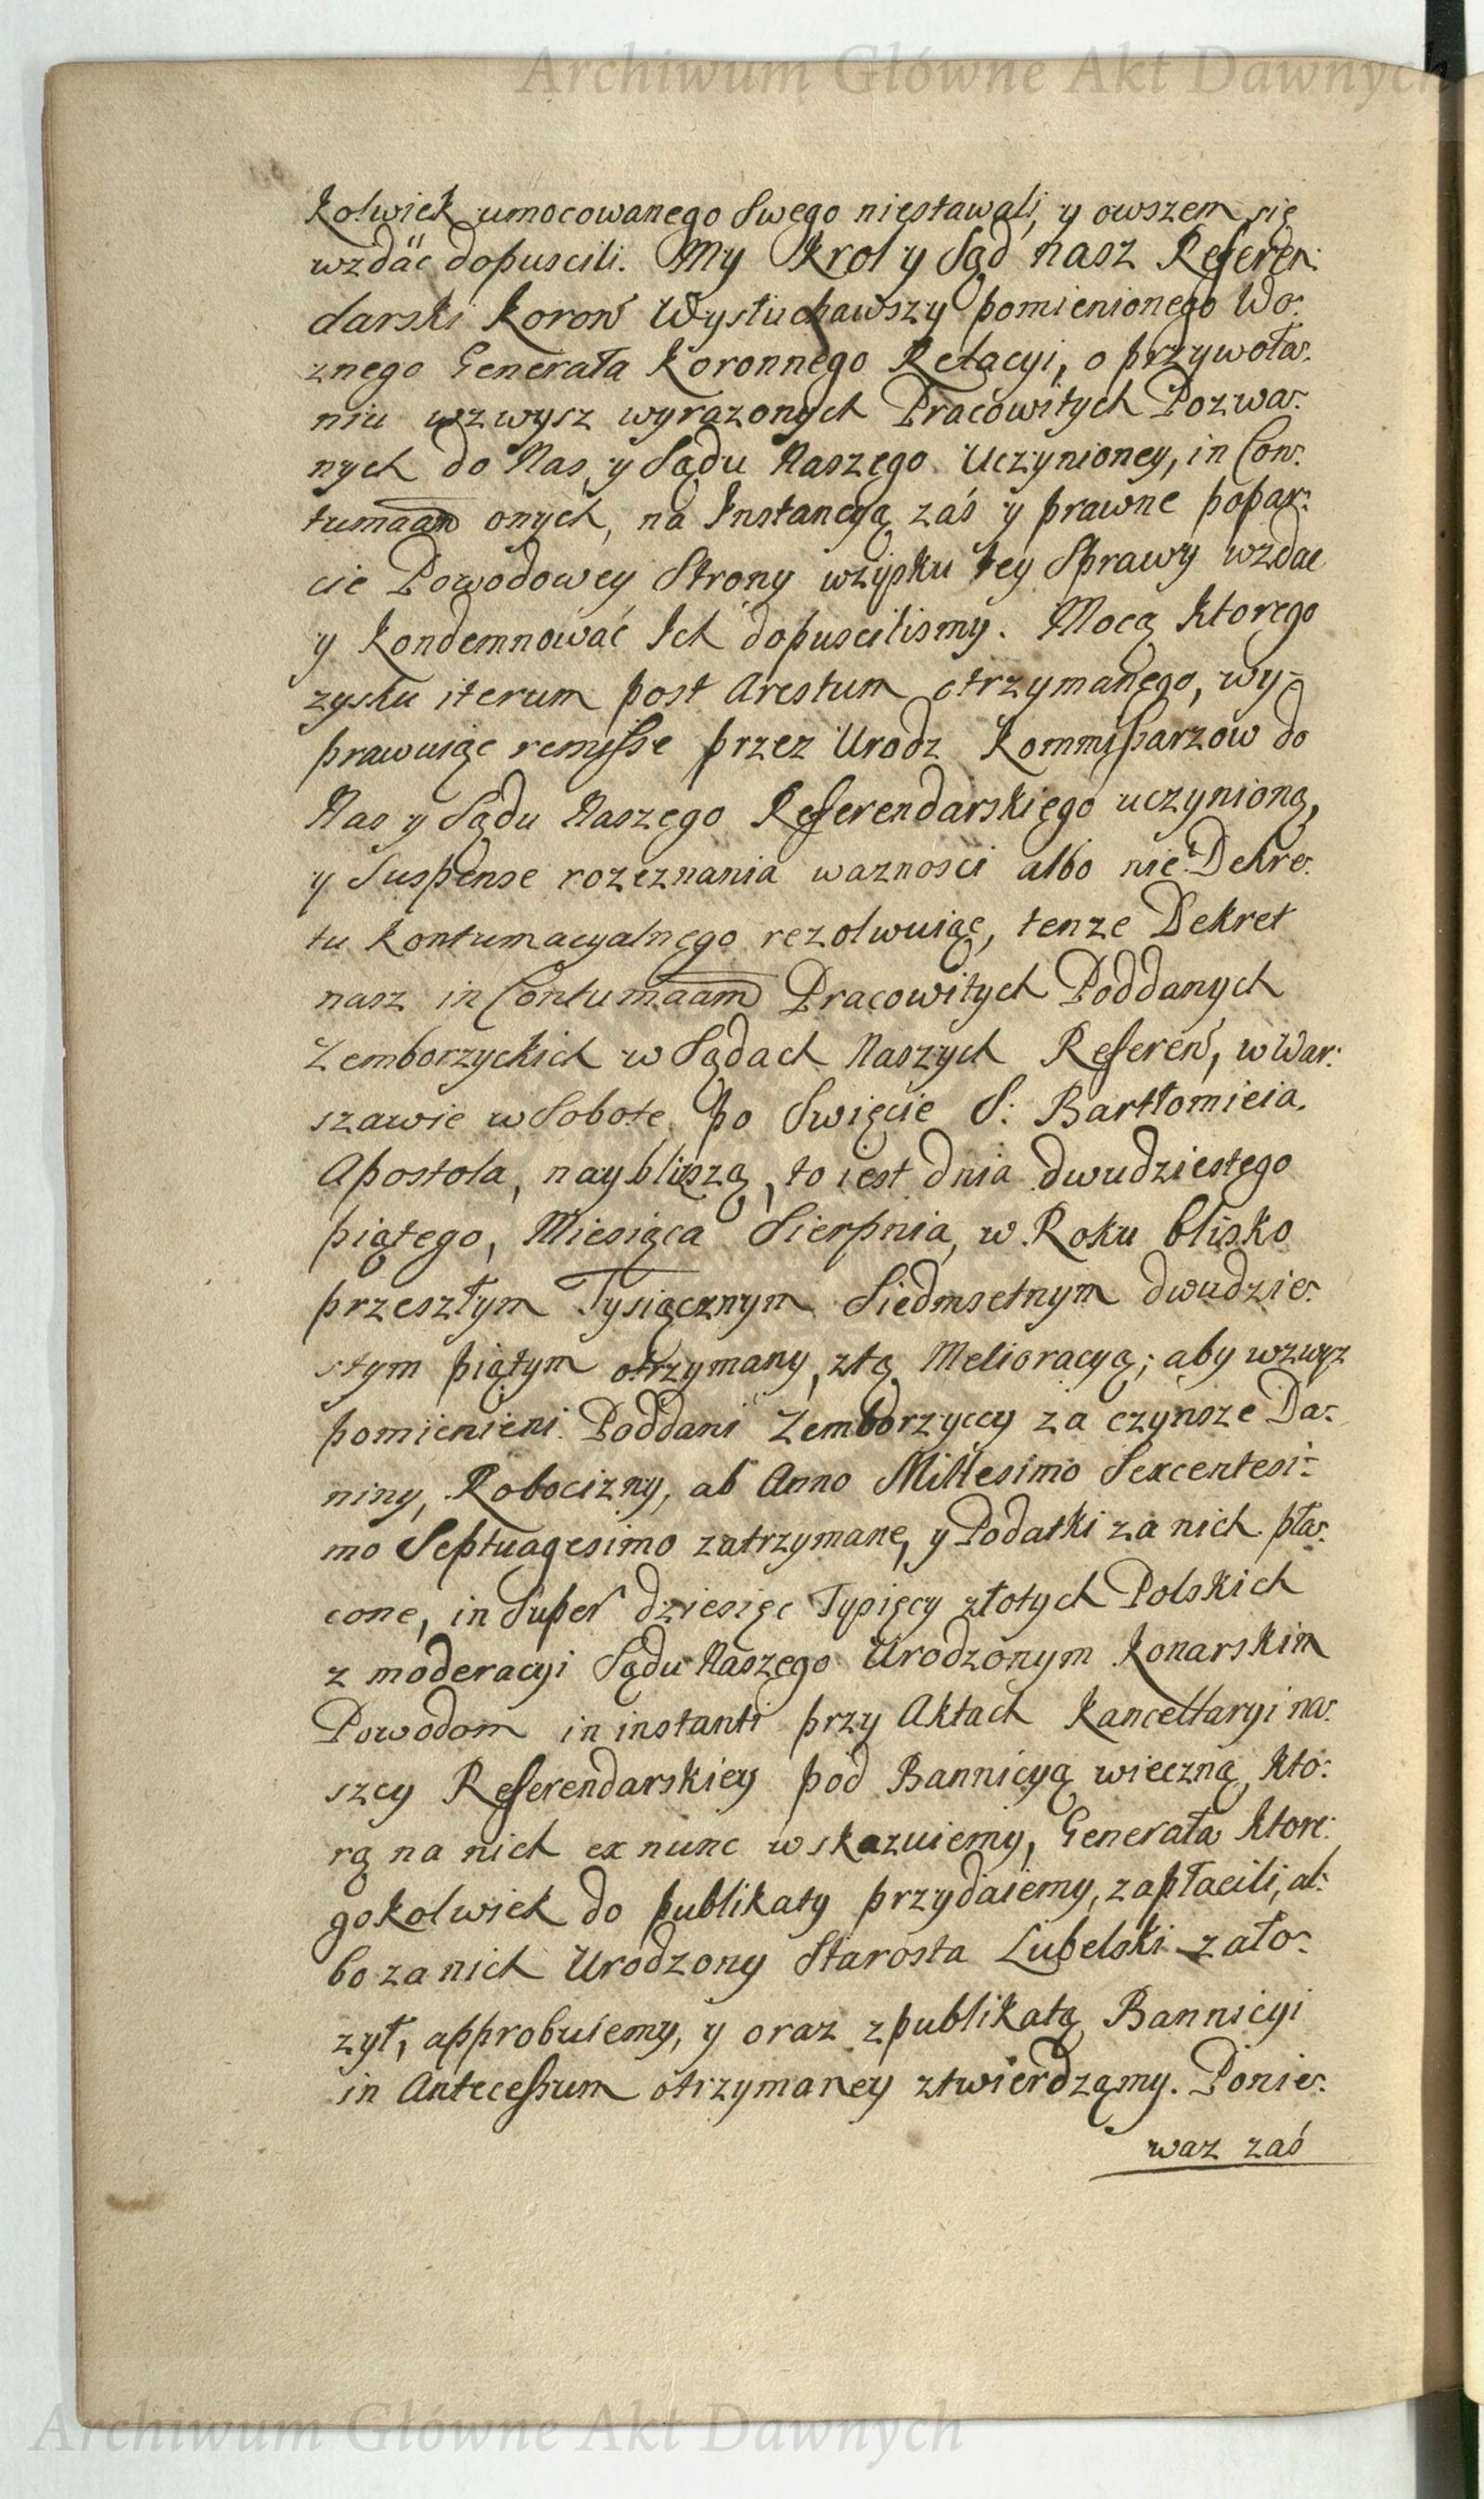 Archiwum Główne Akt Dawnych
kolwiek umocowanego Swego niestawali, y owszem się
wzdać dopuscili. My Krol y Sąd nasz Referen:
darski Koroń Wysłuchawszy pomienionego Wo:
znego Generała Koronnego Relacyi, o przywoła:
niu wzwysz wyrazonych Pracowitych Pozwa:
nych do Nas, y Sądu Naszego Uczynioney, in Con:
tumaam onych, na Instancyą zaś y prawne popar:
cie Powodowey Strony wzysku tey Sprawy wzdae
y Kondemnować Ich dopuscilismy. Mocą ktorego
zysku iterum post Arestum otrzymanego, wy-
prawuiąc remisse przez Urodz Kommissarzow do
Nas y Sądu Naszego Referendarskiego uczynioną,
y Suspense rozeznania waznosci albo nie Dekre:
tu Kontumacyalnego rezolwuiąc, tenze Dekret
nasz in Contumaam Pracowitych Poddanych
Zemborzyckich w Sądach Naszych Refereń, w War:
szawie w Sobote po Swięcie S: Bartłomieia
Apostola, naybliszą, to iest dnia dwudziestego
piątego, Miesiąca Sierpnia, w Roku blisko
przeszłym Tysiącznym Siedmsetnym dwudzie:
stym piątym otrzymany, ztą Melioracyą; aby wzwyz
pomienieni Poddani Zemborzyccy za czynsze Da:
niny, Robocizny, ab Anno Millesimo Sexcentesi:
mo Septuagesimo zatrzymane, y Podatki za nich pła:
cone, in Super dziesięc Tysięcy złotych Polskich
z moderacyi Sądu Naszego Urodzonym Konarskim
Powodom in instanti przy Aktach Kancellaryi na:
szey Referendarskiey pod Bannicyą wieczną, kto:
rą na nich ex nunc wskazuiemy, Generała ktore:
gokolwiek do publikaty przydaiemy, zapłacili, al:
bo za nich Urodzony Starosta Lubelski zało:
zył, approbuiemy, y oraz zpublikatą Bannicyi
in Antecessum otrzymaney ztwierdzamy. Ponie:
waz zaś
Archiwum Główne Akt Dawnych